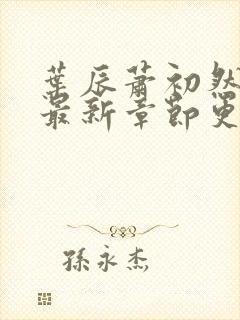 葉辰蕭初然
最新章節更
孫永杰